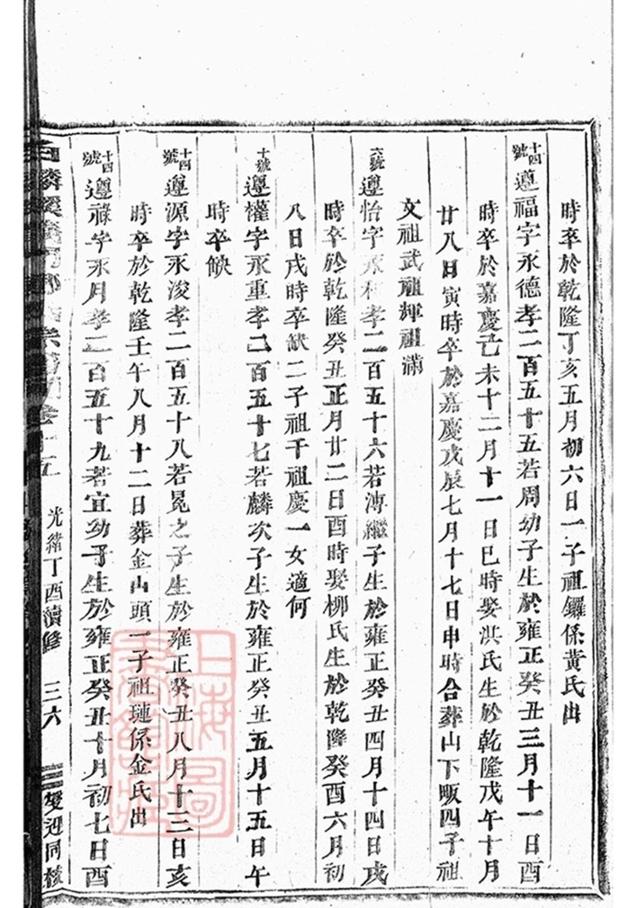 時卒於乾隆丁亥五月初六日一子祖鑼係黃氏出
十四號遵福字永德孝二百五十五若周幼子生於雍正癸丑三月十一日酉
時卒於嘉慶己未十二月十一日巳時娶洪氏生於乾隆戊午十月
廿八日寅時卒於嘉慶戊辰七月十七日申時合葬山下畈四子祖
文祖武祖輝祖滿
六號遵怡字永和孝二百五十六若溥繼子生於雍正癸丑四月十四日戌
時卒於乾隆癸丑正月廿二日酉時娶柳氏生於乾隆癸酉六月初
八日戌時卒缺二子祖干祖慶一女適何
十號遵權字永重孝二百五十七若麟次子生於雍正癸丑五月十五日午
時卒缺
十四號遵源字永浚孝二百五十八若冕之子生於雍正癸丑八月十三日亥
時卒於乾隆壬午八月十二日葬金山頭一子祖璉係金氏出
十四號遵祿字永月孝二百五十九若宜幼子生於雍正癸丑十月初七日酉
白麟溪義門鄭氏宗譜 卷十五 光緒丁酉續修 三六 爰迎同校
上海圖書館藏